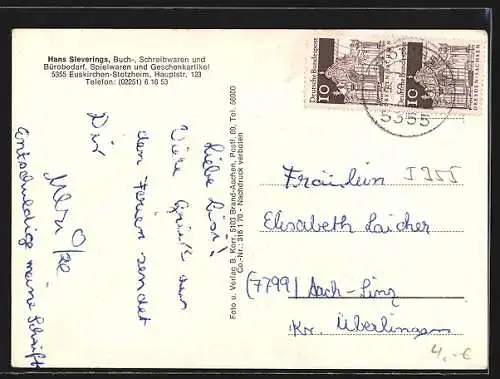 Hans Sieverings, Buch-, Schreibwaren und
Bürobedarf, Spielwaren und Geschenkartikel
5355 Euskirchen-Stotzheim, Hauptstr. 123
Telefon: (02251) 6 16 53
Liebe
Viele Grüße aus
den Ferien sendet
Dir
entschuldige meine Schrift
Foto u. Verlag B. Korr, 5103 Brand-Aachen, Postf. 69, Tel. 56600
Co.-Nr.: 316 1 70 - Nachdruck verboten
Deutsche Bundespost
10
DRESDEN-SACHSEN
Deutsche Bundespost
10
DRESDEN-SACHSEN
5355
Fräulein 5355
Elisabeth Laicher
(7799) Aach-Linz
Kr. Überlingen
4,-€